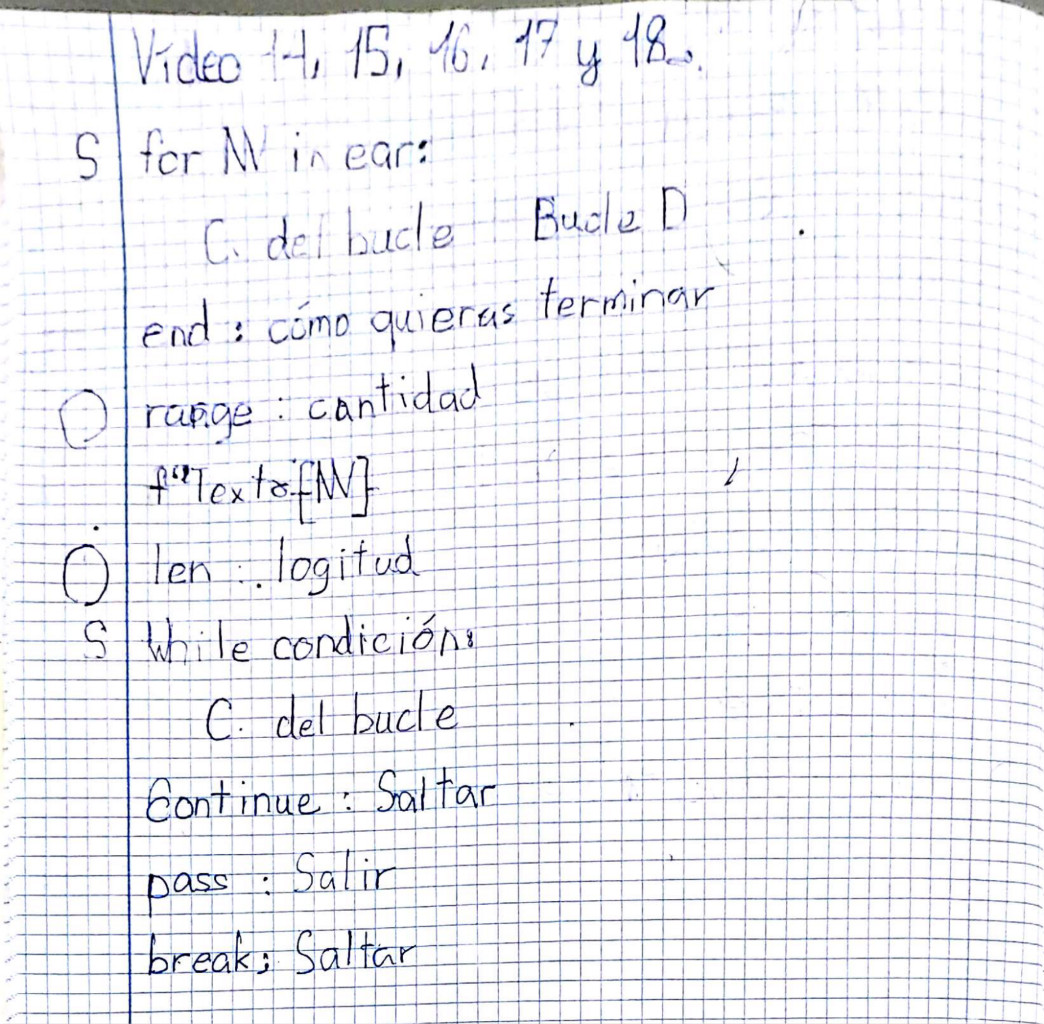 Vídeo 14, 15, 16, 17 y 18.
S for NV in ear:
C. del bucle Bucle D
end : cómo quieras terminar
range : cantidad
f"Texto{NV}
len : logitud
S While condición:
C. del bucle
Continue : Saltar
pass : Salir
break; Saltar